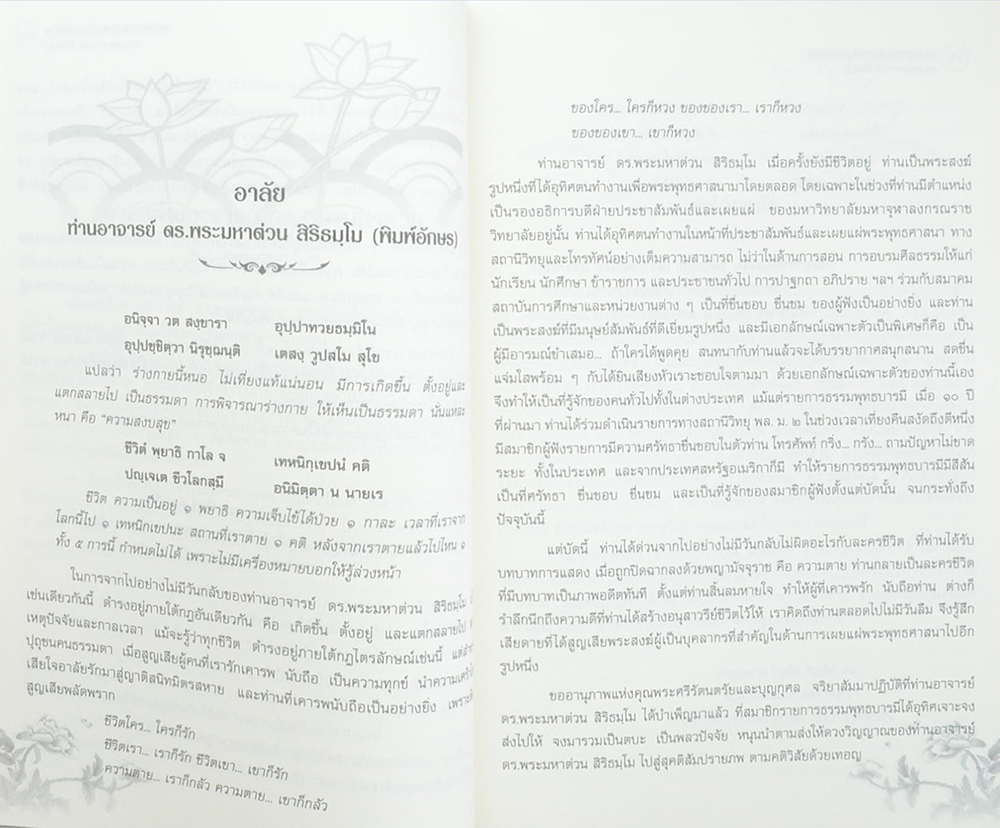 อาลัย
ท่านอาจารย์ ดร.พระมหาต่วน สิริธมฺโม (พิมพ์อักษร)
อนิจฺจา วต สงฺขารา อุปฺปาทวยธมฺมิโน
อุปฺปชฺชิตฺวา นิรุชฺฌนฺติ เตสงฺ วูปสโม สุโข
แปลว่า ร่างกายนี้หนอ ไม่เที่ยงแท้แน่นอน มีการเกิดขึ้น ตั้งอยู่และ
แตกสลายไป เป็นธรรมดา การพิจารณาร่างกาย ให้เห็นเป็นธรรมดา นั่นแหละ
หนา คือ “ความสงบสุข”
ชีวิตํ พฺยาธิ กาโล จ เทหนิกฺเขปนํ คติ
ปญฺเจเต ชีวโลกสฺมึ อนิมิตฺตา น นายเร
ชีวิต ความเป็นอยู่ ๑ พยาธิ ความเจ็บไข้ได้ป่วย ๑ กาละ เวลาที่เราจาก
โลกนี้ไป ๑ เทหนิกเขปนะ สถานที่เราตาย ๑ คติ หลังจากเราตายแล้วไปไหน ๑
ทั้ง ๕ การนี้ กำหนดไม่ได้ เพราะไม่มีเครื่องหมายบอกให้รู้ล่วงหน้า
ในการจากไปอย่างไม่มีวันกลับของท่านอาจารย์ ดร.พระมหาต่วน สิริธมฺโม
เช่นเดียวกันนี้ ดำรงอยู่ภายใต้กฎอันเดียวกัน คือ เกิดขึ้น ตั้งอยู่ และแตกสลายไป
เหตุปัจจัยและกาลเวลา แม้จะรู้ว่าทุกชีวิต ดำรงอยู่ภายใต้กฎไตรลักษณ์เช่นนี้
ปุถุชนคนธรรมดา เมื่อสูญเสียผู้คนที่เรารักเคารพ นับถือ เป็นความทุกข์ นำความเศร้า
เสียใจอาลัยรักมาสู่ญาติสนิทมิตรสหาย และท่านที่เคารพนับถือเป็นอย่างยิ่ง เพราะ
สูญเสียพลัดพราก
ชีวิตใคร... ใครก็รัก
ชีวิตเรา... เราก็รัก ชีวิตเขา... เขาก็รัก
ความตาย... เราก็กลัว ความตาย... เขาก็กลัว
ของใคร... ใครก็หวง ของของเรา... เราก็หวง
ของของเขา... เขาก็หวง
ท่านอาจารย์ ดร.พระมหาต่วน สิริธมฺโม เมื่อครั้งยังมีชีวิตอยู่ ท่านเป็นพระสงฆ์
รูปหนึ่งที่ได้อุทิศตนทำงานเพื่อพระพุทธศาสนามาโดยตลอด โดยเฉพาะในช่วงที่ท่านมีตำแหน่ง
เป็นรองอธิการบดีฝ่ายประชาสัมพันธ์และเผยแผ่ ของมหาวิทยาลัยมหาจุฬาลงกรณราช
วิทยาลัยอยู่นั้น ท่านได้อุทิศตนทำงานในหน้าที่ประชาสัมพันธ์และเผยแผ่พระพุทธศาสนา ทาง
สถานีวิทยุและโทรทัศน์อย่างเต็มความสามารถ ไม่ว่าในด้านการสอน การอบรมศีลธรรมให้แก่
นักเรียน นักศึกษา ข้าราชการ และประชาชนทั่วไป การปาฐกถา อภิปราย ฯลฯ ร่วมกับสมาคม
สถาบันการศึกษาและหน่วยงานต่าง ๆ เป็นที่ชื่นชอบ ชื่นชม ของผู้ฟังเป็นอย่างยิ่ง และท่าน
เป็นพระสงฆ์ที่มีมนุษย์สัมพันธ์ที่ดีเยี่ยมรูปหนึ่ง และมีเอกลักษณ์เฉพาะตัวเป็นพิเศษก็คือ เป็น
ผู้มีอารมณ์ขำเสมอ... ถ้าใครได้พูดคุย สนทนากับท่านแล้วจะได้บรรยากาศสนุกสนาน สดชื่น
แจ่มใสพร้อม ๆ กับได้ยินเสียงหัวเราะชอบใจตามมา ด้วยเอกลักษณ์เฉพาะตัวของท่านนี้เอง
จึงทำให้เป็นที่รู้จักของคนทั่วไปทั้งในต่างประเทศ แม้แต่รายการธรรมพุทธบารมี เมื่อ ๑๐ ปี
ที่ผ่านมา ท่านได้ร่วมดำเนินรายการทางสถานีวิทยุ พล. ม. ๒ ในช่วงเวลาเที่ยงคืนสงัดถึงตีหนึ่ง
มีสมาชิกผู้ฟังรายการมีความศรัทธาชื่นชอบในตัวท่าน โทรศัพท์ กริ่ง... กรัง... ถามปัญหาไม่ขาด
ระยะ ทั้งในประเทศ และจากประเทศสหรัฐอเมริกาก็มี ทำให้รายการธรรมพุทธบารมีมีสีสัน
เป็นที่ศรัทธา ชื่นชอบ ชื่นชม และเป็นที่รู้จักของสมาชิกผู้ฟังตั้งแต่บัดนั้น จนกระทั่งถึง
ปัจจุบันนี้
แต่บัดนี้ ท่านได้ด่วนจากไปอย่างไม่มีวันกลับไม่ผิดอะไรกับละครชีวิต ที่ท่านได้รับ
บทบาทการแสดง เมื่อถูกปิดฉากลงด้วยพญามัจจุราช คือ ความตาย ท่านกลายเป็นละครชีวิต
ที่มีบทบาทเป็นภาพอดีตทันที ตั้งแต่ท่านสิ้นลมหายใจ ทำให้ผู้ที่เคารพรัก นับถือท่าน ต่างก็
รำลึกนึกถึงความดีที่ท่านได้สร้างอนุสาวรีย์ชีวิตไว้ให้ เราคิดถึงท่านตลอดไปไม่มีวันลืม จึงรู้สึก
เสียดายที่ได้สูญเสียพระสงฆ์ผู้เป็นบุคลากรที่สำคัญในด้านการเผยแผ่พระพุทธศาสนาไปอีก
รูปหนึ่ง
ขออานุภาพแห่งคุณพระศรีรัตนตรัยและบุญกุศล จริยาสัมมาปฏิบัติที่ท่านอาจารย์
ดร.พระมหาต่วน สิริธมฺโม ได้บำเพ็ญมาแล้ว ที่สมาชิกรายการธรรมพุทธบารมีได้อุทิศเจาะจง
ส่งไปให้ จงมารวมเป็นตบะ เป็นพลวปัจจัย หนุมนำตามส่งให้ดวงวิญญาณของท่านอาจารย์
ดร.พระมหาต่วน สิริธมฺโม ไปสู่สุคติสัมปรายภพ ตามคติวิสัยด้วยเทอญ